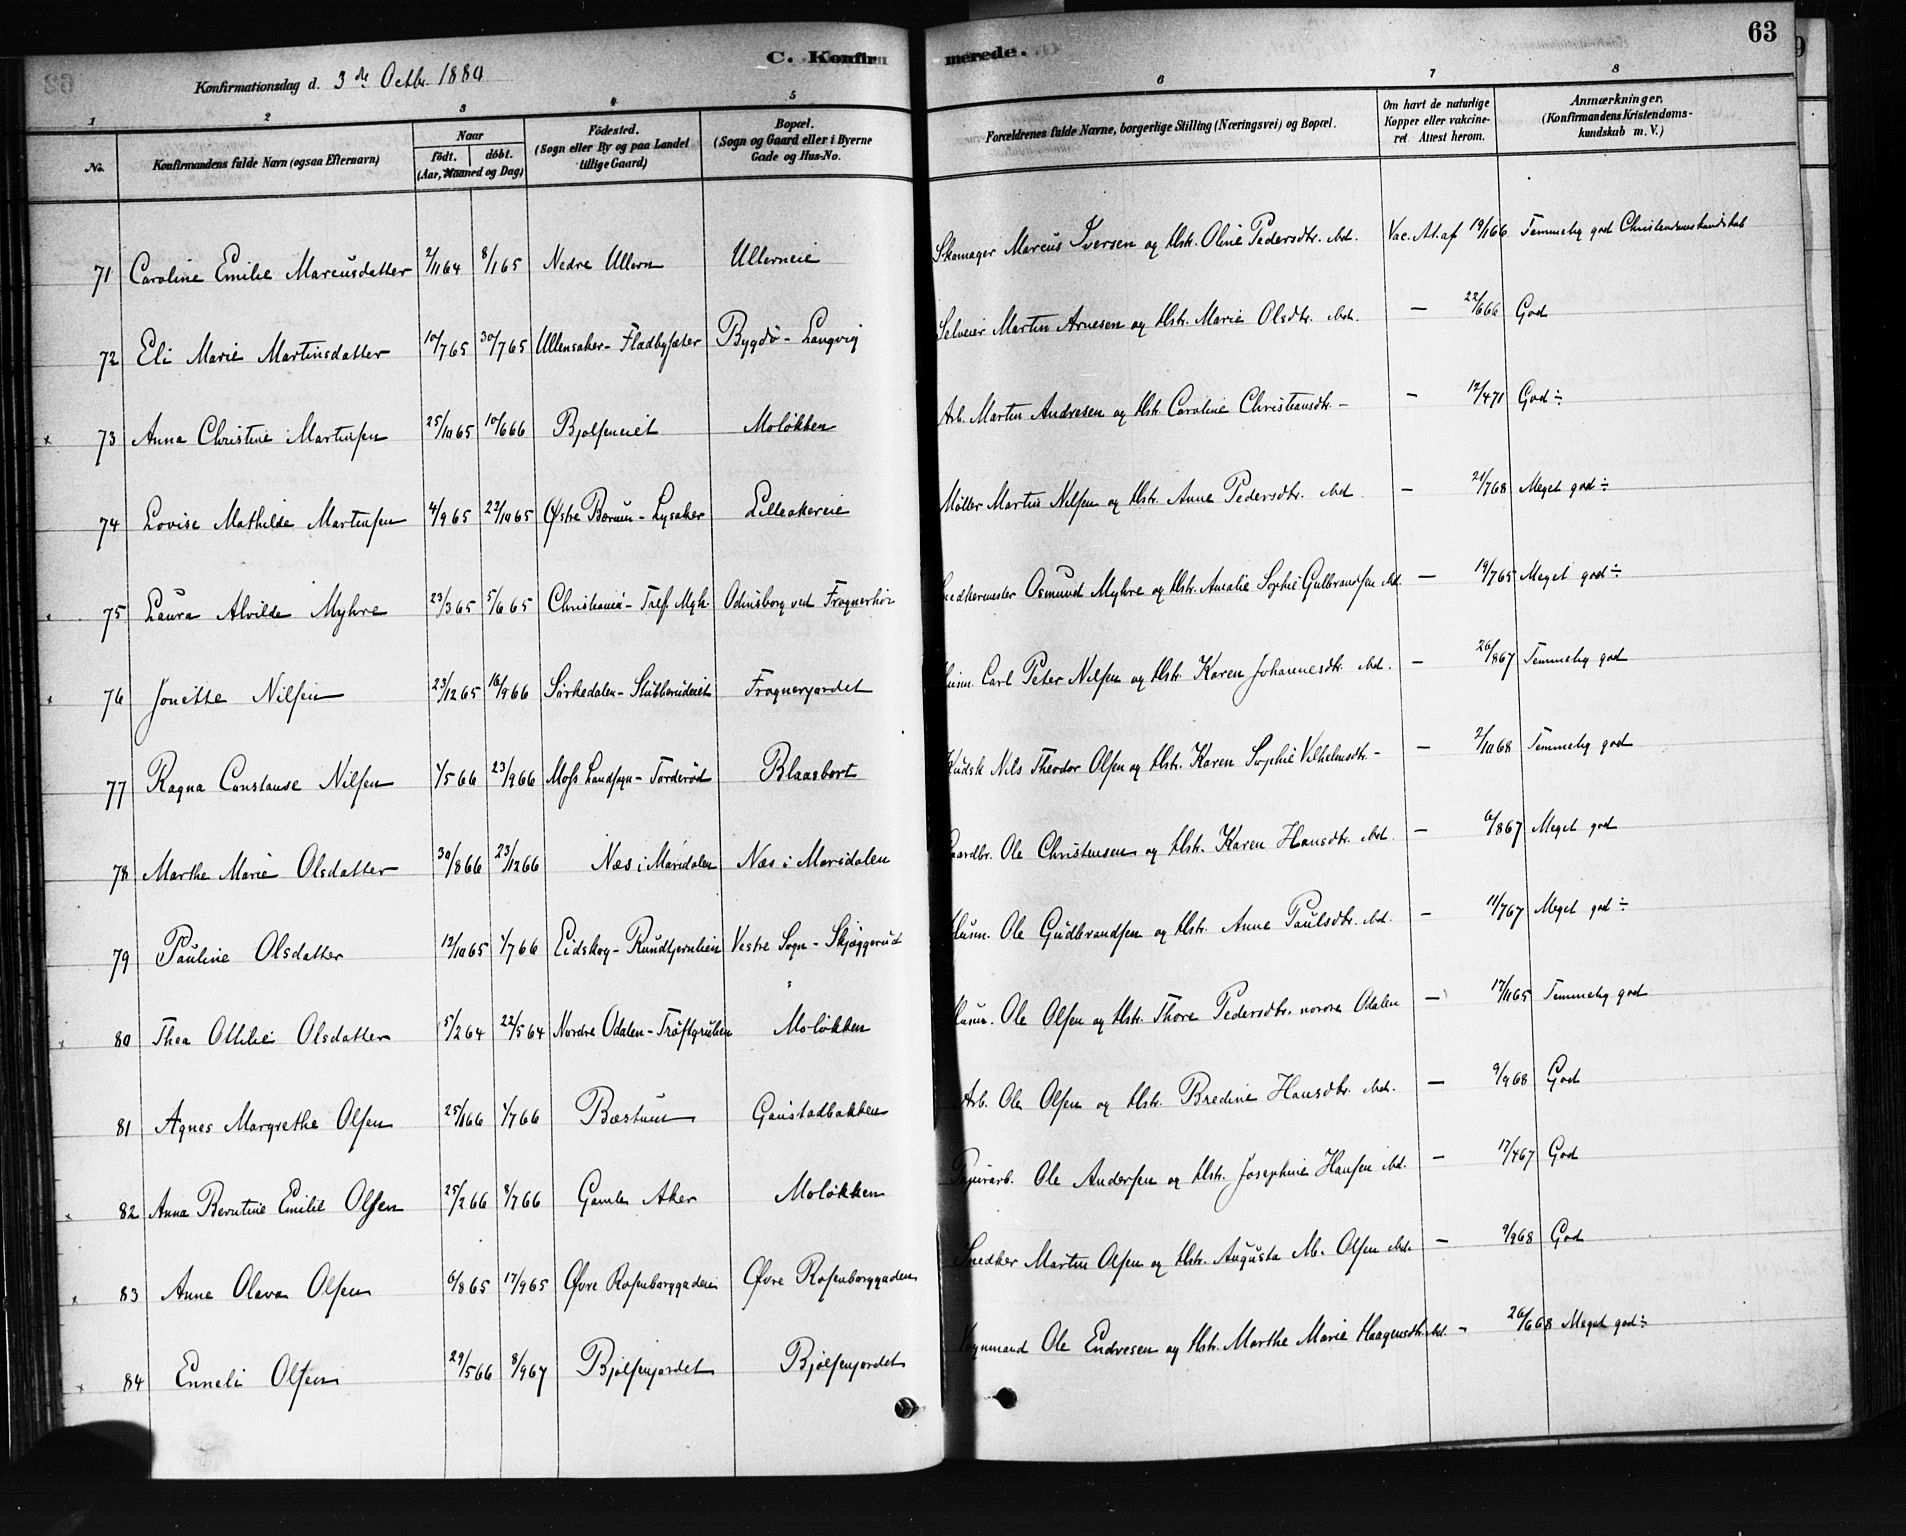 C. Konfirmerede.
63
Konfirmationsdag d. 3de Octbr. 1880
1 2 3 4 5 6 7 8
No. Konfirmandens fulde Navn (ogsaa Efternavn) Naar født. døbt. (Aar, Maaned og Dag) Fødested. (Sogn eller By og paa Landet tillige Gaard) Bopæl. (Sogn og Gaard eller i Byerne Gade og Hus-No. Forældrenes fulde Navne, borgerlige Stilling (Næringsvei) og Bopæl. Om havt de naturlige Kopper eller vakcineret Attest herom. Anmærkninger. (Konfirmandens Kristendomskundskab m. V.)
71 Caroline Emilie Marcusdatter 2/11 64 8/1 65 Nedre Ullern Ullerneie Skomager Marcus Iversen og Hstr. Oline Pedersdtr. ibd. Vac. At. af 19/1 66 Temmelig god Christendomskundskab
72 Eli Marie Martinsdatter 10/7 65 30/7 65 Ullensaker - Fladbysæter Bygdø - Langvig Selveier Martin Arnesen og Hstr. Marie Olsdtr. ibd. — 22/6 66 God
73 Anna Christine Martinsen 25/10 65 10/6 66 Bjølseneiet Moløkken Arb. Martin Andresen og Hstr. Caroline Christiansdtr. — — 12/4 71 God ÷
74 Lovise Mathilde Martinsen 4/9 65 22/10 65 Østre Bærum - Lysaker Lilleakereie Møller Martin Nilsen og Hstr. Anne Pedersdtr. ibd. — 21/7 68 Meget god ÷
75 Laura Alvilde Myhre 23/3 65 5/6 65 Christiania - Tref. Mgh. Odinsborg ved Frognerhøi Snedkermester Osmund Myhre og Hstr. Amalie Sophie Gulbrandsen ibd. — 19/7 65 Meget god ÷
76 Jonette Nilsen 23/12 65 16/9 66 Sørkedalen - Stubberudeiet Frognerjordet Husm. Carl Peter Nilsen og Hstr. Karen Johannesdtr. ibd. — 26/8 67 Temmelig god
77 Ragna Constanse Nilsen 1/5 66 23/9 66 Moss Landsogn - Torderød Blaasbort Kudsk Nils Theodor Olsen og Hstr. Karen Sophie Vilhelmsdtr. — — 2/10 68 Temmelig god
78 Marthe Marie Olsdatter 30/8 66 23/12 66 Næs i Maridalen Næs i Maridalen Gaardbr. Ole Christensen og Hstr. Karen Hansdtr. ibd. — 6/8 67 Meget god
79 Pauline Olsdatter 12/10 65 1/7 66 Eidskog - Rundtjernlien Vestre Sogn - Skjøggerud Husm. Ole Gudbrandsen og Hstr. Anne Paulsdtr. ibd. — 11/7 67 Meget god ÷
80 Thea Ottilie Olsdatter 5/2 64 22/5 64 Nordre Odalen - Trøftgruben Moløkken Husm. Ole Olsen og Hstr. Thore Pedersdtr. nordre Odalen — 17/11 65 Temmelig god
81 Agnes Margrethe Olsen 25/1 66 1/7 66 Bæstum Gaustadbakken Arb. Ole Olsen og Hstr. Bredine Hansdtr. ibd. — 9/9 68 God
82 Anna Berntine Emilie Olsen 25/2 66 8/7 66 Gamle Aker Moløkken Papirarb. Ole Andersen og Hstr. Josephine Hansen ibd. — 17/4 67 God
83 Anne Olava Olsen 6/8 65 17/9 65 Øvre Rosenborggaden Øvre Rosenborggaden Snedker Martin Olsen og Hstr. Augusta M. Olsen ibd. — 9/9 68 God
84 Enneli Olsen 29/5 66 8/9 67 Bjølsenjordet Bjølsenjordet Vognmand Ole Endresen og Hstr. Marthe Marie Haagensdtr. ibd. — 26/6 68 Meget god ÷